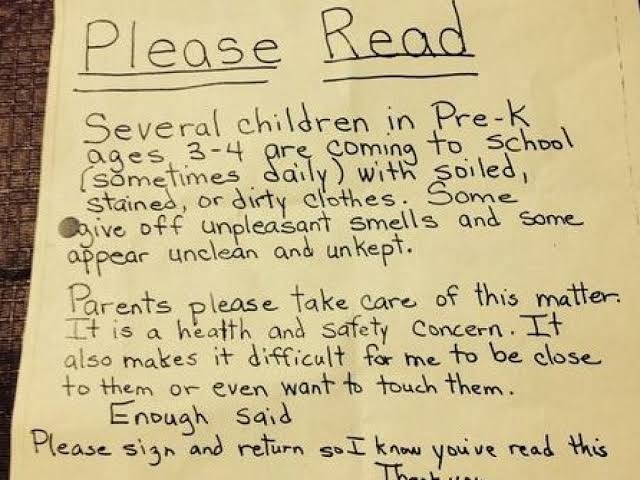 Please Read
Several children in Pre-K
ages 3-4 are coming to school
(sometimes daily) with soiled,
stained, or dirty clothes. Some
give off unpleasant smells and some
appear unclean and unkept.
Parents please take care of this matter.
It is a health and safety concern. It
also makes it difficult for me to be close
to them or even want to touch them.
Enough said
Please sign and return so I know you've read this